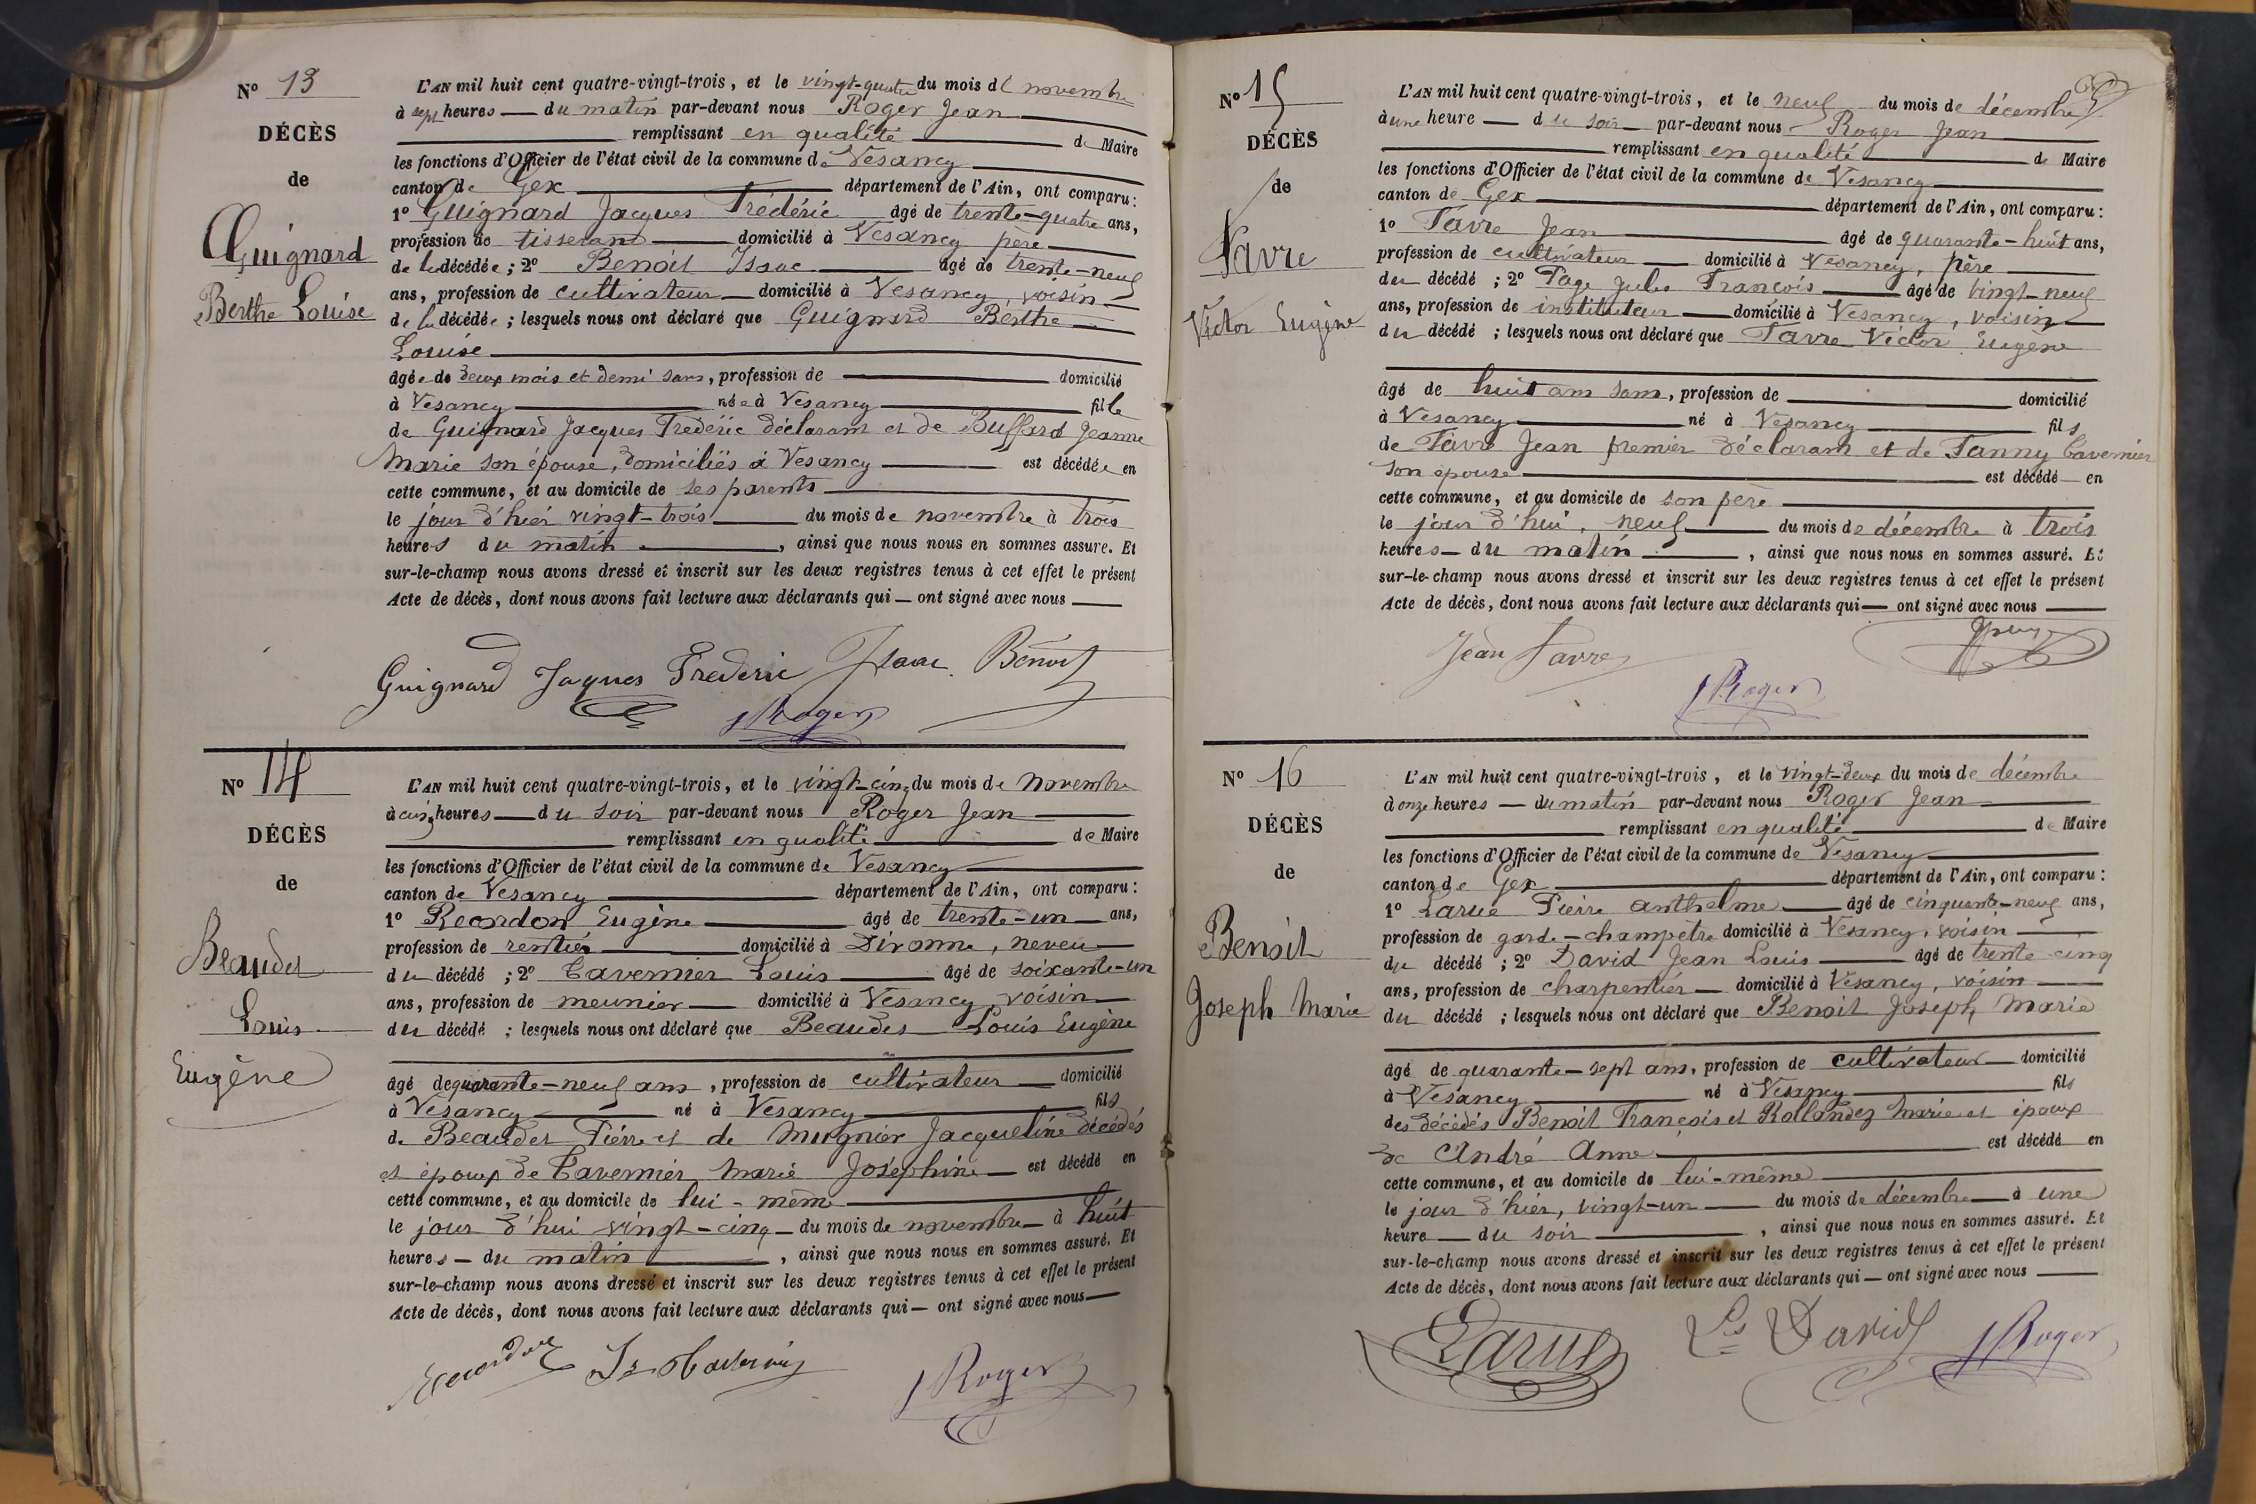 N° 13
DÉCÈS
de
Guignard
Berthe Louise
L'AN mil huit cent quatre-vingt-trois, et le vingt-quatre du mois de novembre
à sept heures du matin par-devant nous Roger Jean
remplissant en qualité de Maire
les fonctions d'Officier de l'état civil de la commune de Vesancy
canton de Gex département de l'Ain, ont comparu :
1° Guignard Jacques Frédéric âgé de trente-quatre ans,
profession de tisserand domicilié à Vesancy père
de la décédée ; 2° Benoit Isaac âgé de trente-neuf
ans, profession de cultivateur domicilié à Vesancy, voisin
de la décédée ; lesquels nous ont déclaré que Guignard Berthe
Louise
âgée de deux mois et demi sans, profession de domicilié
à Vesancy née à Vesancy fille
de Guignard Jacques Frédéric déclarant et de Buffard Jeanne
Marie son épouse, domiciliés à Vesancy est décédée en
cette commune, et au domicile de ses parents
le jour d'hier vingt-trois du mois de novembre à trois
heures du matin, ainsi que nous nous en sommes assuré. Et
sur-le-champ nous avons dressé et inscrit sur les deux registres tenus à cet effet le présent
Acte de décès, dont nous avons fait lecture aux déclarants qui ont signé avec nous
Guignard Jaques Frederic Isaac Benoit
J Roger
N° 14
DÉCÈS
de
Beaudet
Louis
Eugène
L'AN mil huit cent quatre-vingt-trois, et le vingt-cinq du mois de novembre
à cinq heures du soir par-devant nous Roger Jean
remplissant en qualité de Maire
les fonctions d'Officier de l'état civil de la commune de Vesancy
canton de Vesancy département de l'Ain, ont comparu :
1° Recordon Eugène âgé de trente-un ans,
profession de rentier domicilié à Divonne, neveu
du décédé ; 2° Tavernier Louis âgé de soixante-un
ans, profession de meunier domicilié à Vesancy, voisin
du décédé ; lesquels nous ont déclaré que Beaudet Louis Eugène
âgé de quarante-neuf ans, profession de cultivateur domicilié
à Vesancy né à Vesancy fils
de Beaudet Pierre et de Mugnier Jacqueline décédés
et époux de Tavernier Marie Joséphine est décédé en
cette commune, et au domicile de lui-même
le jour d'hui vingt-cinq du mois de novembre à huit
heures du matin, ainsi que nous nous en sommes assuré. Et
sur-le-champ nous avons dressé et inscrit sur les deux registres tenus à cet effet le présent
Acte de décès, dont nous avons fait lecture aux déclarants qui ont signé avec nous
J Roger
N° 15
DÉCÈS
de
Favre
Victor Eugène
L'AN mil huit cent quatre-vingt-trois, et le neuf du mois de décembre
à une heure du soir par-devant nous Roger Jean
remplissant en qualité de Maire
les fonctions d'Officier de l'état civil de la commune de Vesancy
canton de Gex département de l'Ain, ont comparu :
1° Favre Jean âgé de quarante-huit ans,
profession de cultivateur domicilié à Vesancy, père
du décédé ; 2° Page Jules François âgé de vingt-neuf
ans, profession de instituteur domicilié à Vesancy, voisin
du décédé ; lesquels nous ont déclaré que Favre Victor Eugène
âgé de huit ans sans, profession de domicilié
à Vesancy né à Vesancy fils
de Favre Jean premier déclarant et de Fanny Tavernier
son épouse est décédé en
cette commune, et au domicile de son père
le jour d'hui, neuf du mois de décembre à trois
heures du matin, ainsi que nous nous en sommes assuré. Et
sur-le-champ nous avons dressé et inscrit sur les deux registres tenus à cet effet le présent
Acte de décès, dont nous avons fait lecture aux déclarants qui ont signé avec nous
Jean Favre
J Roger
N° 16
DÉCÈS
de
Benoit
Joseph Marie
L'AN mil huit cent quatre-vingt-trois, et le vingt-deux du mois de décembre
à onze heures du matin par-devant nous Roger Jean
remplissant en qualité de Maire
les fonctions d'Officier de l'état civil de la commune de Vesancy
canton de Gex département de l'Ain, ont comparu :
1° Larue Pierre Anthelme âgé de cinquante-neuf ans,
profession de garde-champêtre domicilié à Vesancy, voisin
du décédé ; 2° David Jean Louis âgé de trente-cinq
ans, profession de charpentier domicilié à Vesancy, voisin
du décédé ; lesquels nous ont déclaré que Benoit Joseph Marie
âgé de quarante-sept ans, profession de cultivateur domicilié
à Vesancy né à Vesancy fils
des décédés Benoit François et Rollandez Marie et époux
de André Anne est décédé en
cette commune, et au domicile de lui-même
le jour d'hier, vingt-un du mois de décembre à une
heure du soir, ainsi que nous nous en sommes assuré. Et
sur-le-champ nous avons dressé et inscrit sur les deux registres tenus à cet effet le présent
Acte de décès, dont nous avons fait lecture aux déclarants qui ont signé avec nous
Larue Ls David J Roger